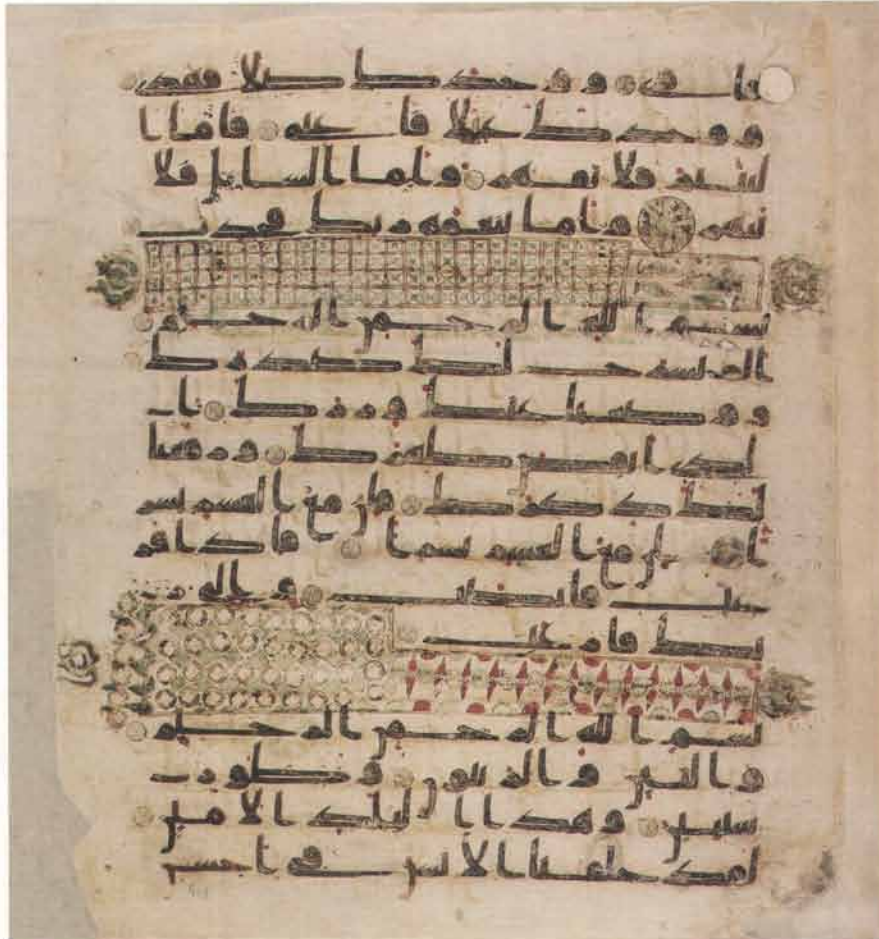 فاوى ووجدك ضالا فهدى
ووجدك عيلا فاغنى فاما ا
ليتيم فلا تقهر واما السايل فلا
تنهر واما بنعمه ربك فحدث
بسم الله الرحمن الرحيم
الم نشرح لك صدرك
ووضعنا عنك وزرك ا
لذى انقض ظهرك ورفعنا
لك ذكرك فان مع العسر يسر
ا ان مع العسر يسرا فاذا فر
غت فانصب والى ر
بك فارغب
بسم الله الرحمن الرحيم
والتين والزيتون وطور
سينين وهذا البلد الامين
لقد خلقنا الانسن فى احسن